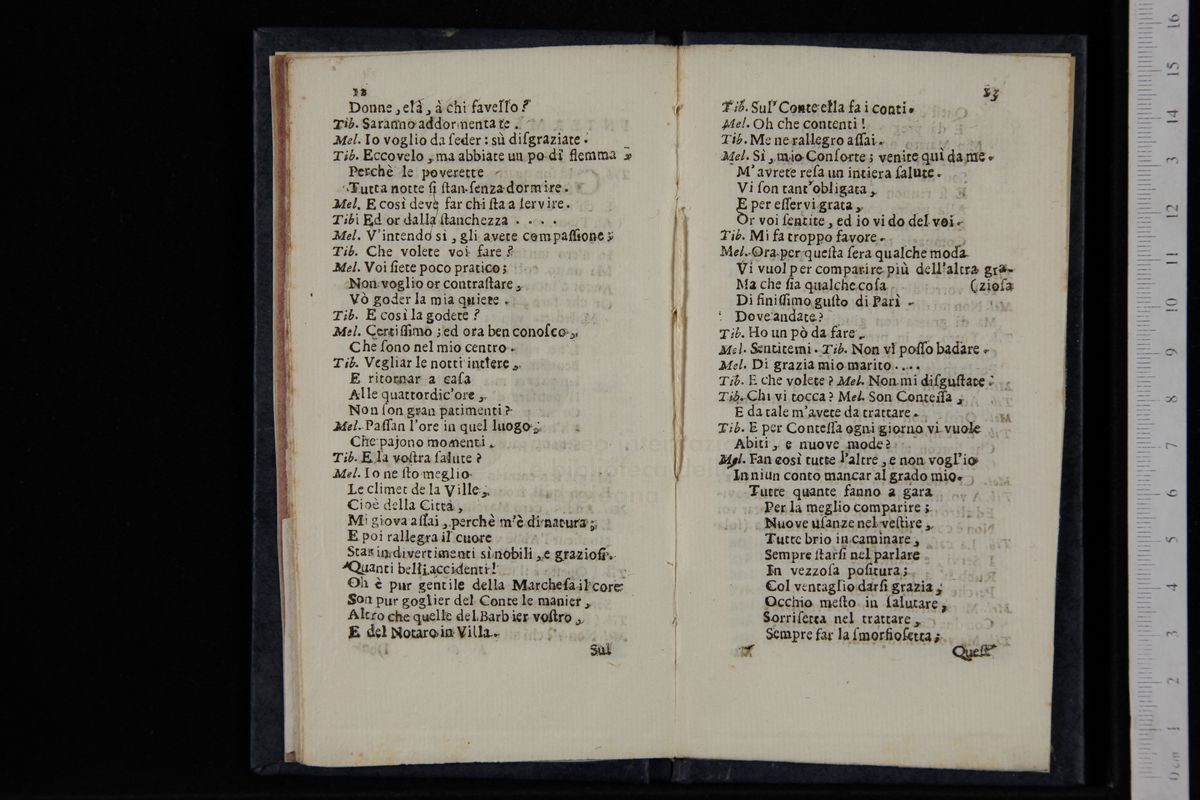 12
Donne, elà, à chi favello?
Tib. Saranno addormentate.
Mel. Io voglio da ſeder: sù diſgraziate.
Tib. Eccovelo, ma abbiate un po di flemma,
Perchè le poverette
Tutta notte ſi ſtan ſenza dormire.
Mel. E così deve far chi ſta a ſervire.
Tibi Ed or dalla ſtanchezza . . . .
Mel. V'intendo sì, gli avete compaſſione;
Tib. Che volete voi fare?
Mel. Voi ſiete poco pratico;
Non voglio or contraſtare,
Vò goder la mia quiete.
Tib. E così la godete?
Mel. Certiſſimo; ed ora ben conoſco,
Che ſono nel mio centro.
Tib. Vegliar le notti intiere,
E ritornar a caſa
Alle quattordic'ore,
Non ſon gran patimenti?
Mel. Paſſan l'ore in quel luogo,
Che pajono momenti.
Tib. E la voſtra ſalute?
Mel. Io ne ſto meglio
Le climet de la Ville,
Cioè della Città,
Mi giova aſſai, perchè m'è di natura;
E poi rallegra il cuore
Star in divertimenti sì nobili, e grazioſi.
Quanti belli accidenti!
Oh è pur gentile della Marcheſa il core
Son pur goglier del Conte le manier,
Altro che quelle del Barbier voſtro,
E del Notaro in Villa.
Sul
13
Tib. Sul' Conte ella fa i conti.
Mel. Oh che contenti!
Tib. Me ne rallegro aſſai.
Mel. Sì, mio Conſorte; venite quì da me.
M'avrete reſa un intiera ſalute.
Vi ſon tant'obligata,
E per eſſervi grata,
Or voi ſentite, ed io vi do del voi.
Tib. Mi fa troppo favore.
Mel. Ora per queſta ſera qualche moda
Vi vuol per comparire più dell'altra gra-
Ma che ſia qualche coſa (zioſa
Di finiſſimo guſto di Parì.
Dove andate?
Tib. Ho un pò da fare.
Mel. Sentitemi. Tib. Non vi poſſo badare.
Mel. Di grazia mio marito . . . .
Tib. E che volete? Mel. Non mi diſguſtate:
Tib. Chi vi tocca? Mel. Son Conteſſa,
E da tale m'avete da trattare.
Tib. E per Conteſſa ogni giorno vi vuole
Abiti, e nuove mode?
Mel. Fan così tutte l'altre, e non vogl'io
In niun conto mancar al grado mio.
Tutte quante fanno a gara
Per la meglio comparire;
Nuove uſanze nel veſtire,
Tutte brio in caminare,
Sempre ſtarſi nel parlare
In vezzoſa poſitura;
Col ventaglio darſi grazia,
Occhio meſto in ſalutare,
Sorriſetta nel trattare,
Sempre far la ſmorfioſetta;
Queſt'